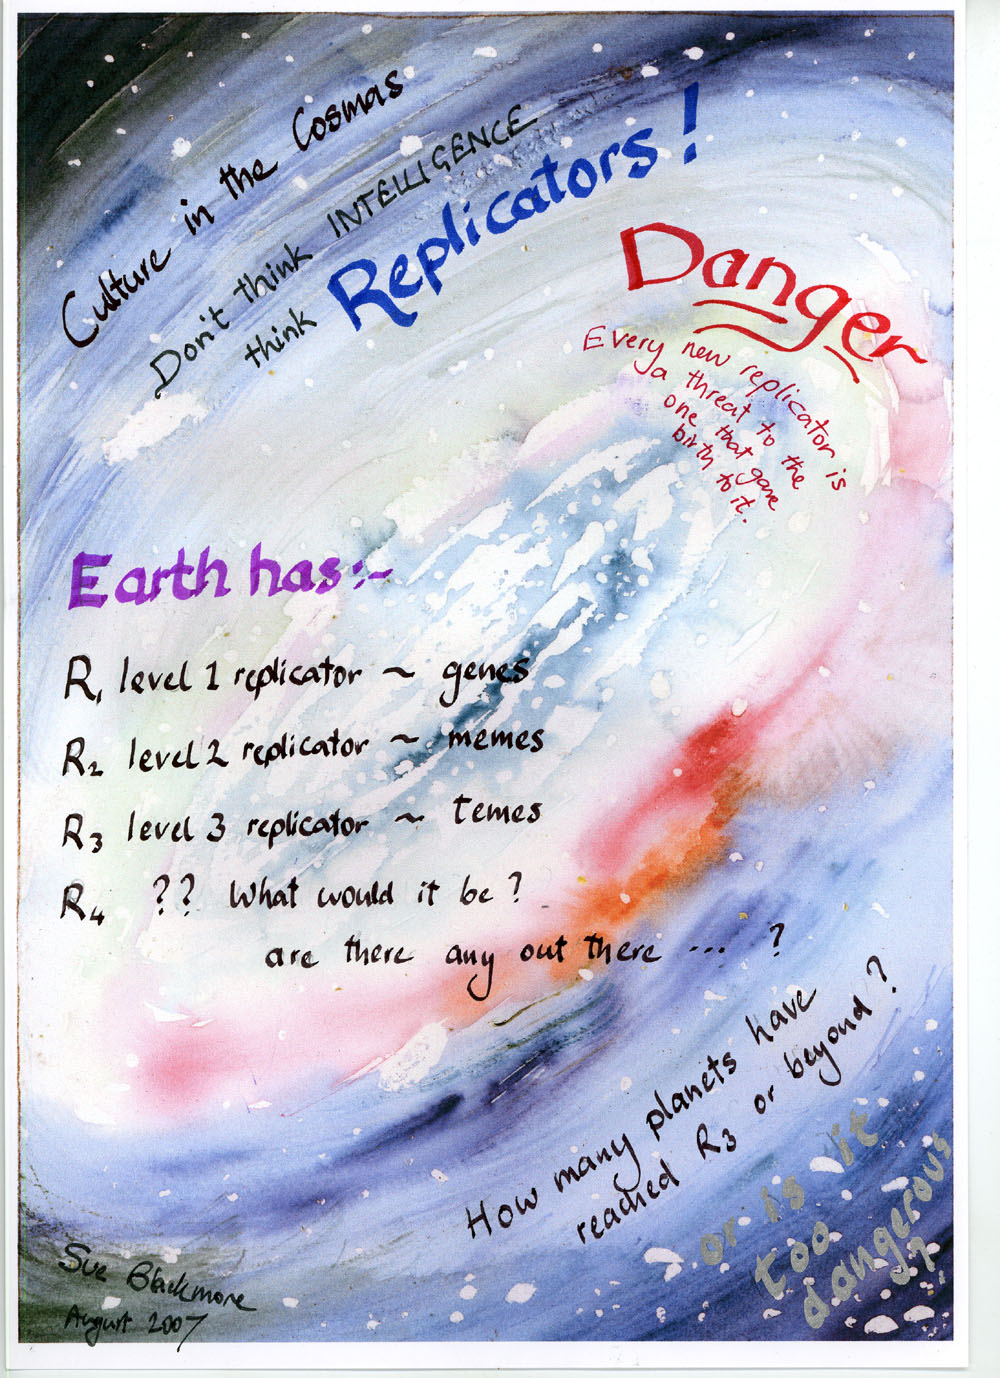 Culture in the Cosmas
Don't think INTELLIGENCE
think Replicators!
Danger
Every new replicator is
a threat to the
one that gave
birth to it.
Earth has:-
R1 level 1 replicator ~ genes
R2 level 2 replicator ~ memes
R3 level 3 replicator ~ temes
R4 ?? What would it be?
are there any out there ... ?
How many planets have
reached R3 or beyond?
or is it
too
dangerous
?
Sue Blackmore
August 2007